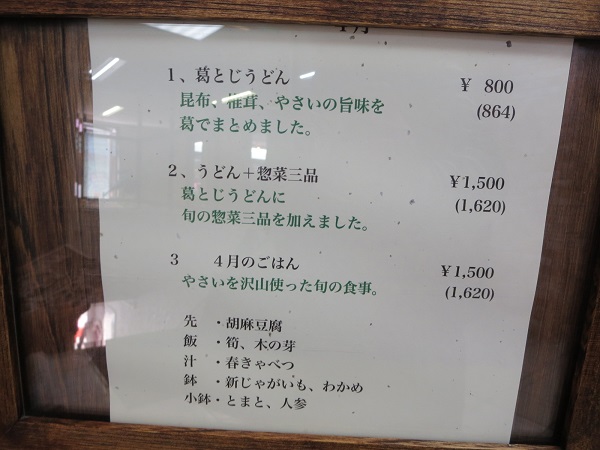 1、葛とじうどん ¥ 800
昆布、椎茸、やさいの旨味を (864)
葛でまとめました。
2、うどん＋惣菜三品 ¥1,500
葛とじうどんに (1,620)
旬の惣菜三品を加えました。
3 4月のごはん ¥1,500
やさいを沢山使った旬の食事。 (1,620)
先 ・胡麻豆腐
飯 ・筍、木の芽
汁 ・春きゃべつ
鉢 ・新じゃがいも、わかめ
小鉢・とまと、人参